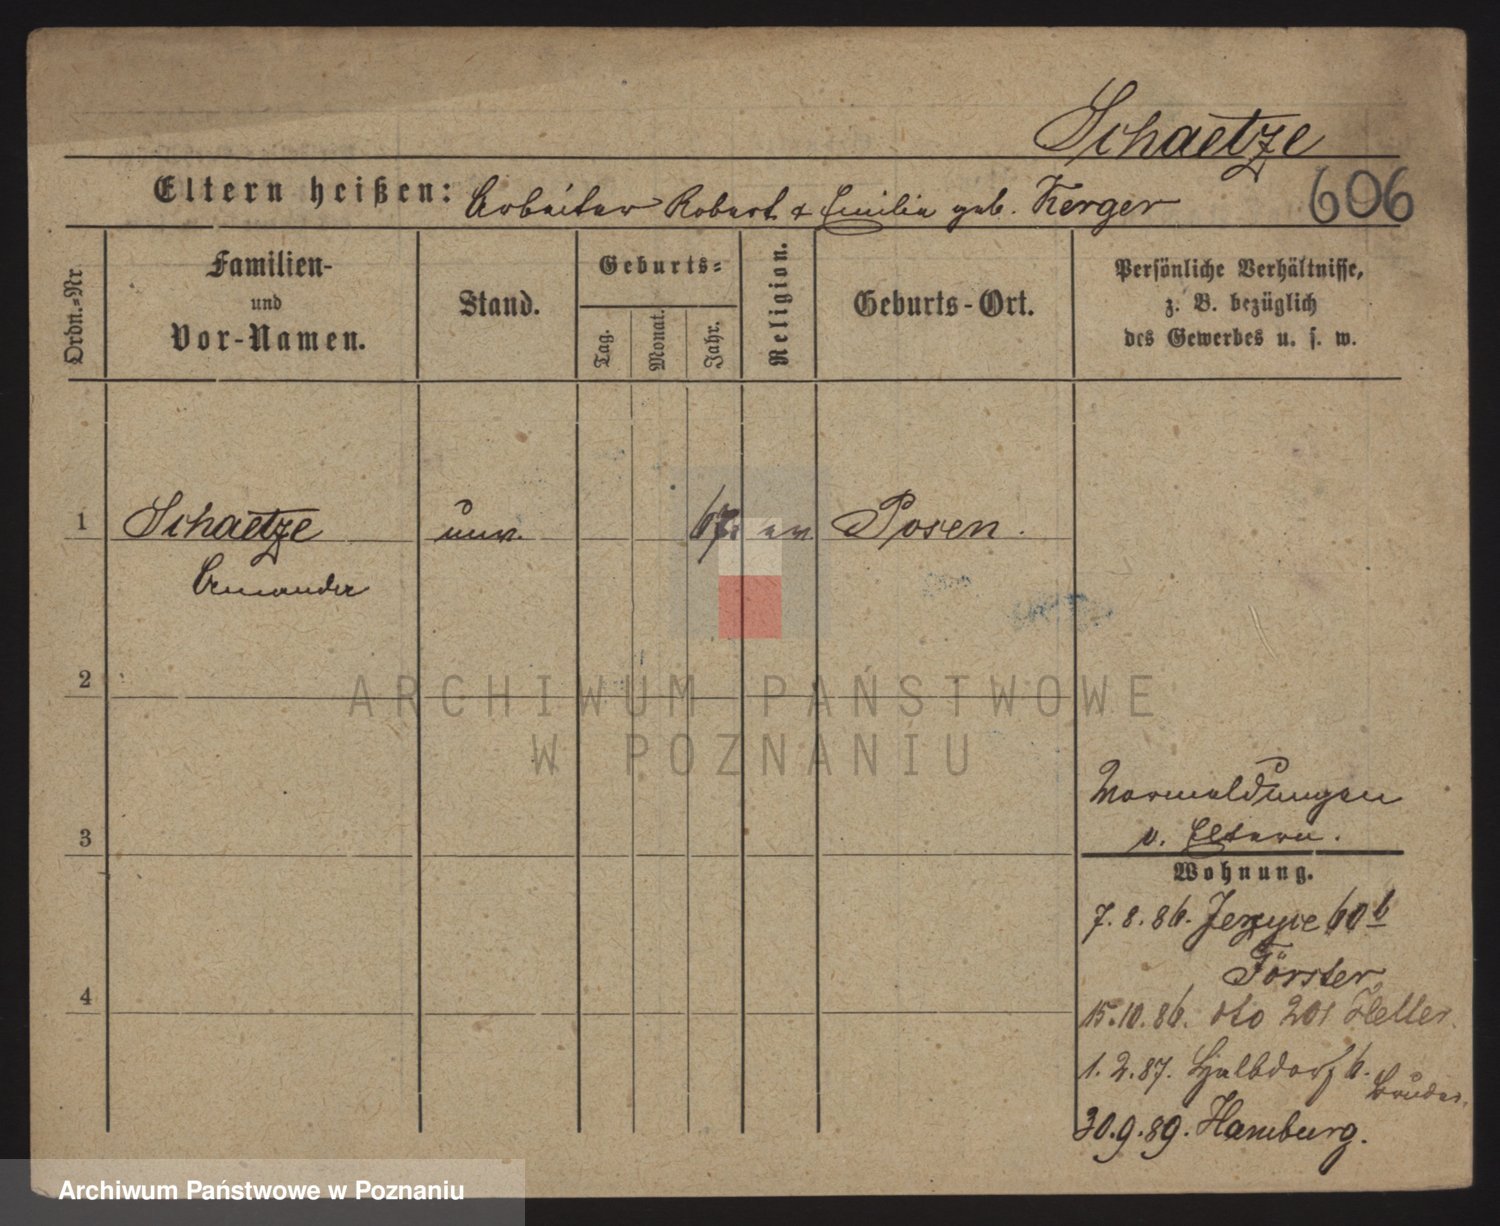 Schaetze
Eltern heißen: Arbeiter Robert & Emilie geb. Kerger
606
Ordn.-Nr.
Familien-
und
Vor-Namen.
Stand.
Geburts-
Tag.
Monat.
Jahr.
Religion.
Geburts-Ort.
Persönliche Verhältnisse,
z. B. bezüglich
des Gewerbes u. s. w.
1 Schaetze unv. 67. ev. Posen.
2
ARCHIWUM PAŃSTWOWE
W POZNANIU
Vormeldungen
3 v. Eltern.
Wohnung.
7.8.86. Jerzyce 60b
Förster
4
15.10.86. dto 201 Heller.
1.2.87. Halbdorf 6. Bruder.
30.9.89. Hamburg.
Archiwum Państwowe w Poznaniu